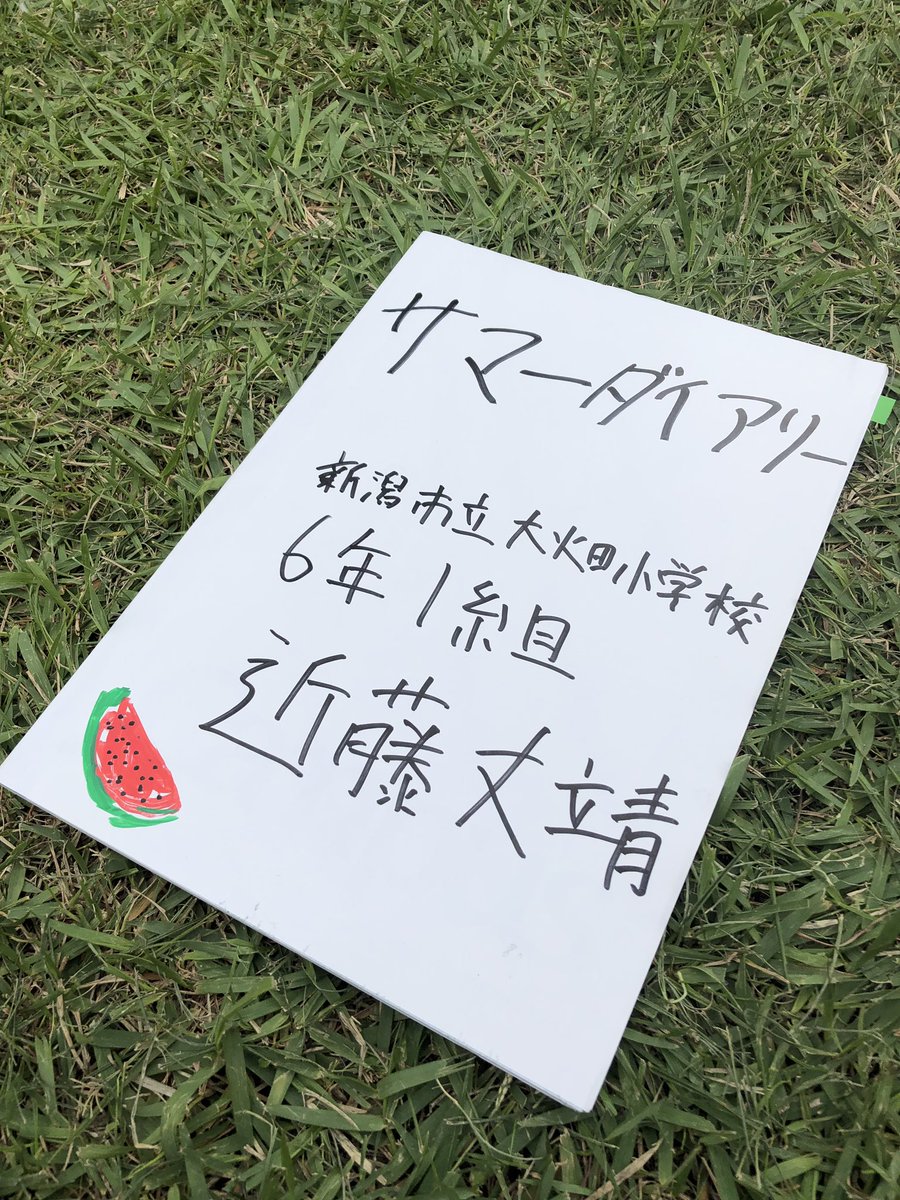 サマーダイアリー
新潟市立大畑小学校
6年1組
近藤丈靖